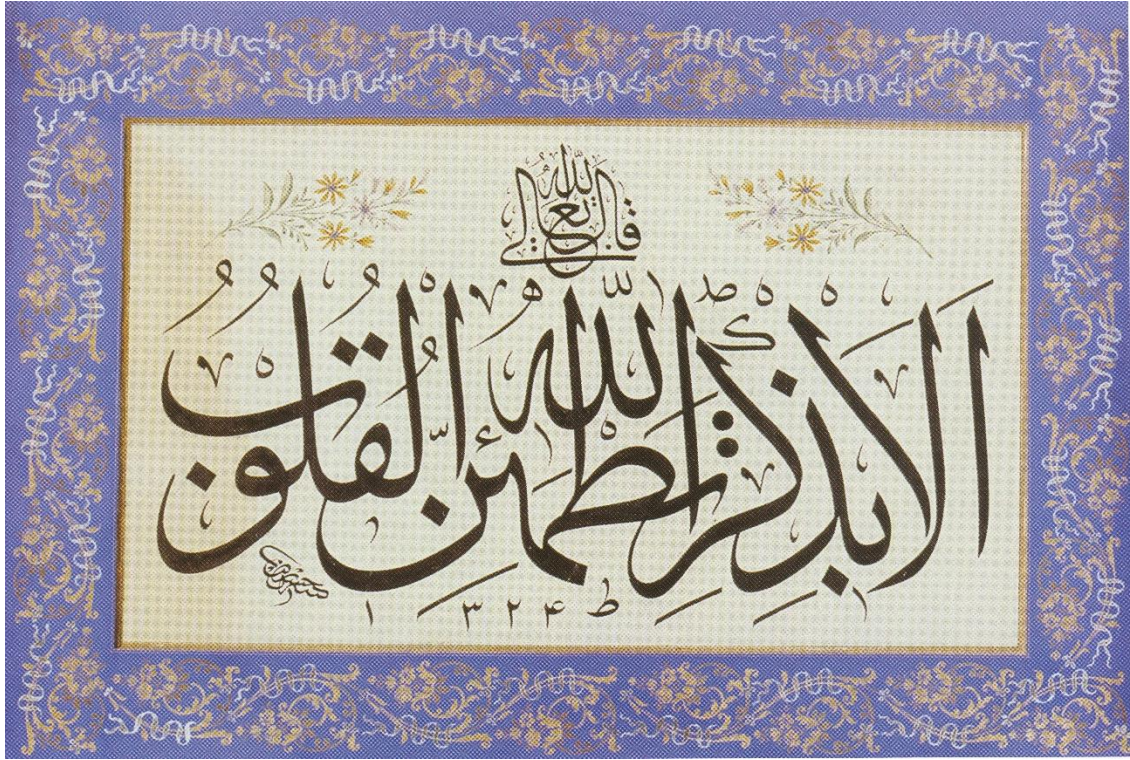 قال الله تعالى
ألا بذكر الله تطمئن القلوب
١٣٢٤